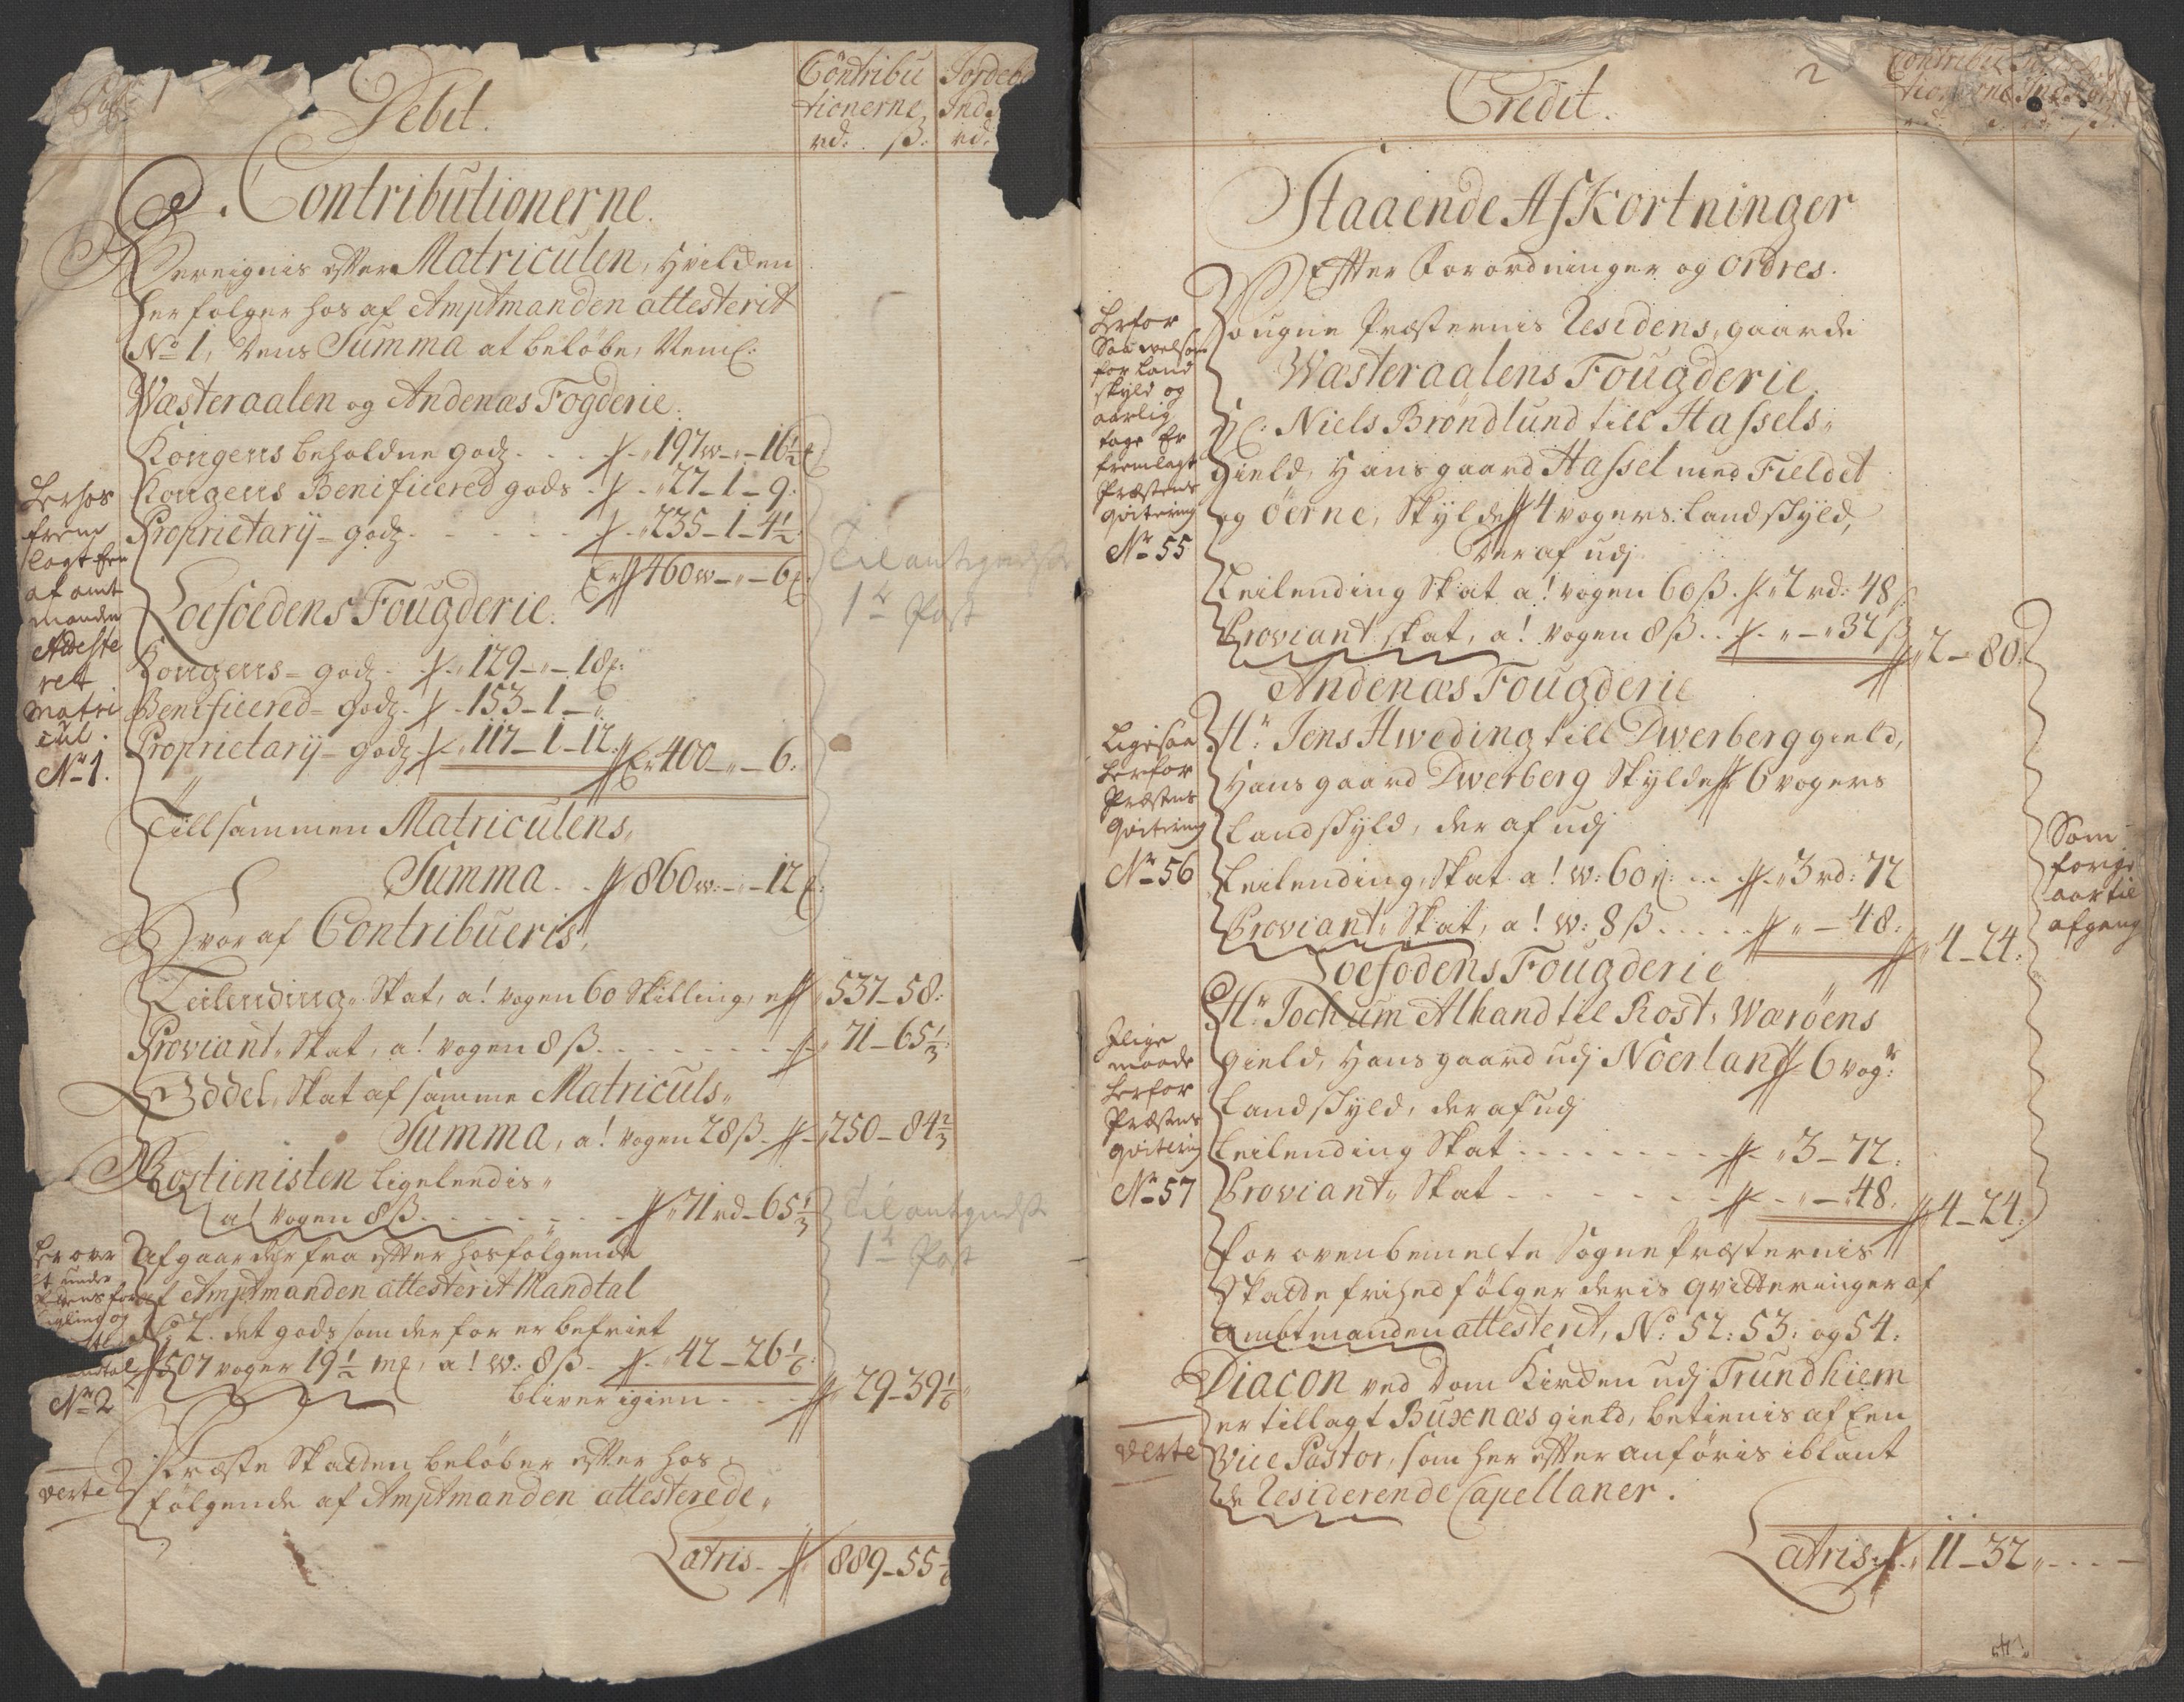 1
Debet.
Contribu
tionerne
rd: ß:
Jordeb
Ind
rd:
Contributionerne.
Bereignis effter Matriculen, Hvilcken
Herfølger hos af Amptmanden attesterit
No 1, Dens Summa at beløbe, Neml:
Wæsteraalen og Andenæs Fogderie.
Kongens beholdne godz . . . . 197 w - „ - 16½ ℔
Kongens Benificered gods . 27 - 1 - 9.
Proprietarij - godz . . . . . 235 - 1 - 4½.
Er 460 w - „ - 6
Loefoedens Fougderie.
Kongens - godz . 129 - „ - 18
Benificered - godz . 153 - 1 - „
Proprietarij - godz 117 - 1 - 12. Er 400 - „ - 6.
Tillsammen Matriculens„
Summa . . 860 w: - „ - 12
Hvor af Contribueris,
Leilending„ Skat, a! vogen 60 Skilling, er 537 - 58:
Proviant„ Skat, a! vogen 8 ß . . . . . . 71 - 65⅓:
Oddel„ Skat af samme Matriculs„
Summa, a! vogen 28 ß . 250 - 84⅔
Rostienisten ligeleedis„
a! vogen 8 ß . . . . . . 71 rd - 65⅓
Afgaar der fra effter hosfølgende
af Amptmanden attesterit Mandtal
No 2. det gods som derfor er befriet
507 voger 19½ ml, a! w: 8 ß - 42 - 26⅙.
bliver igien . . . 29 - 39⅙
Præste Skatten beløber effter hos
følgende af Amptmanden attesterede„
Latris . 889 - 55
Herhos
frem
lagt Er
af amt
manden
Atteste
ret
Matri
cul.
No 1.
under
No 2
verte
Til antegnelse
1te Post
Til antegnelse
1te Post
2
Credit.
Contribu
tionerne
Staaende Afkortninger
Effter Forordninger og Ordres.
Sougne Præsternis Residens, gaarde
Wæsteraalens Fougderie.
Hr: Niels Bröndlund till Hassels„
gield, Hans gaard Hassel med Fieldet
og öerne, Skylder 4 vogers Landskyld,
Der af udj
Leilending Skat a! vogen 60 ß . 2 rd: 48
Proviant skat, a! vogen 8 ß . . „ - „ 32 ß 2 - 80.
Andenæs Fougderie
Hr: Jens Hweding till Dwerberg gield,
Hans gaard Dwerberg Skylder 6 vogers
Landskyld, der af udj
Leilending„ Skat a! w: 60 ß: . . . 3 rd: 72
Proviant„ Skat, a! w: 8 ß . . . . . „ - 48. 4 - 24.
Loefodens Fougderie
Hr: Jochum Alhand til Rost, Wæröens
gield, Hans gaard udj Nöerland 6 vogr:
Landskyld, der af udj
Leilending Skat . . . . . . . . „ 3 - 72.
Proviant„ Skat . . . . . . „ - 48. 4 - 24.
For ovenbemelte Sogne Præsternis
Skatte frihed følger deris qvitteringer af
Ambtmanden attesterit, No: 52: 53: og 54:
Diacon ved Dom Kircken udj Trundhiem
er tillagt Buxnæs gield, betienis af Een
Vice Pastor, som her effter anføris iblant
de Residerende Capellaner.
Latris . 11 - 32 „ - - - -
Herfor
Saavelsom
for Land
skyld og
aarlig
tage Er
fremlagt
Præstens
qvitering
No 55
Ligesaa
herfor
Præstens
qvitering
No 56
Jlige
maade
herfor
Præstens
qvitering
No 57
verte
Som
forige
aar til
afgang